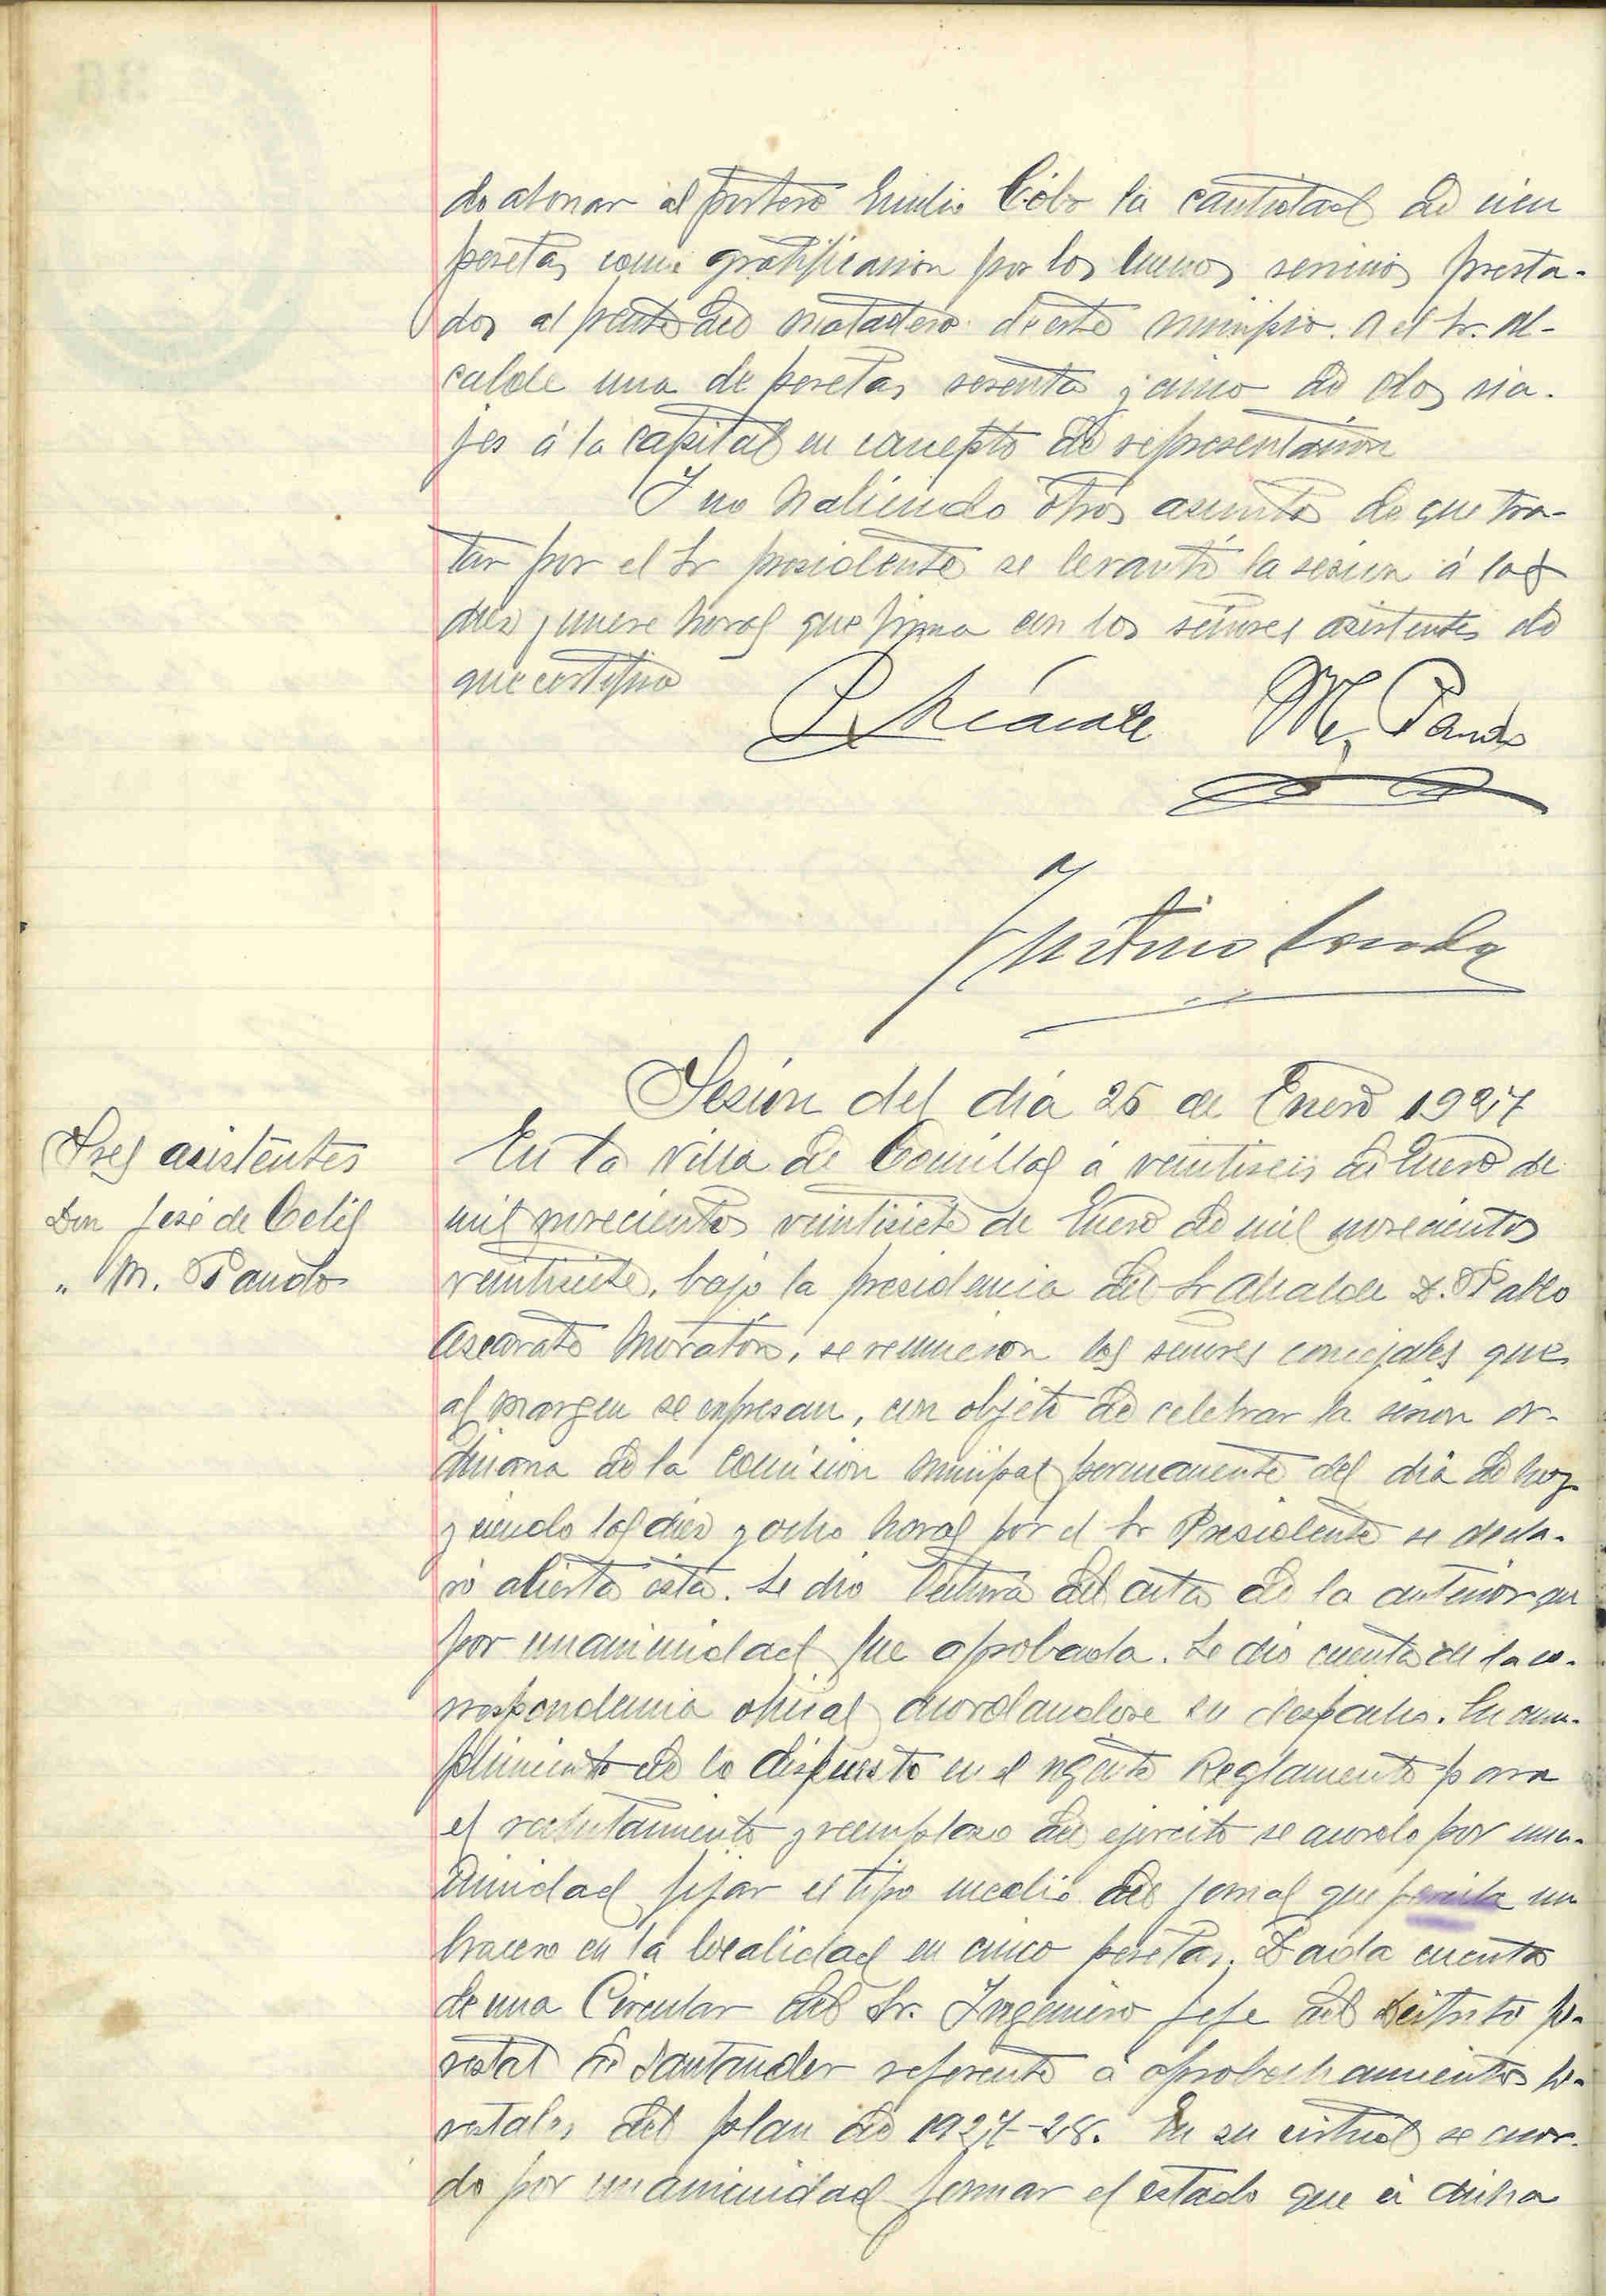 do abonar al portero Emilio Cobo la cantidad de cien
pesetas como gratificacion por los buenos servicios presta-
dos al frente del matadero de este municipio. A el Sr. Al-
calde una de pesetas sesenta y cinco de dos via-
jes á la capital en concepto de representacion
Y no habiendo otros asuntos de que tra-
tar por el Sr presidente se levantó la sesion á las
diez y nueve horas que firma con los señores asistentes de
que certifico
M. Pando
Sesión del dia 26 de Enero 1927
Sres asistentes
Don José de Celis
" M. Pando
En la Villa de Comillas á veintiseis de Enero de
mil novecientos veintisiete de Enero de mil novecientos
veintisiete, bajo la presidencia del Sr Alcalde D. Pablo
Ascarate Moratón, se reunieron los señores concejales que
al margen se expresan, con objeto de celebrar la sesion or-
dinaria de la Comision municipal permanente del dia de hoy
y siendo las diez y ocho horas por el Sr Presidente se decla-
ró abierta ésta. Se dio lectura del acta de la anterior que
por unanimidad fue aprobada. Se dio cuenta de la co-
rrespondencia oficial acordandose su despacho. En cum-
plimiento de lo dispuesto en el vigente Reglamento para
el reclutamiento y reemplazo del ejercito se acordo por una-
nimidad fijar el tipo medio del jornal que un
bracero en la localidad en cinco pesetas. Dada cuenta
de una Circular del Sr. Ingeniero Jefe del Distrito fo-
restal de Santander referente á aprobechamientos fo-
restales del plan de 1927-28. En su virtud se acor-
do por unanimidad formar el estado que á dicha